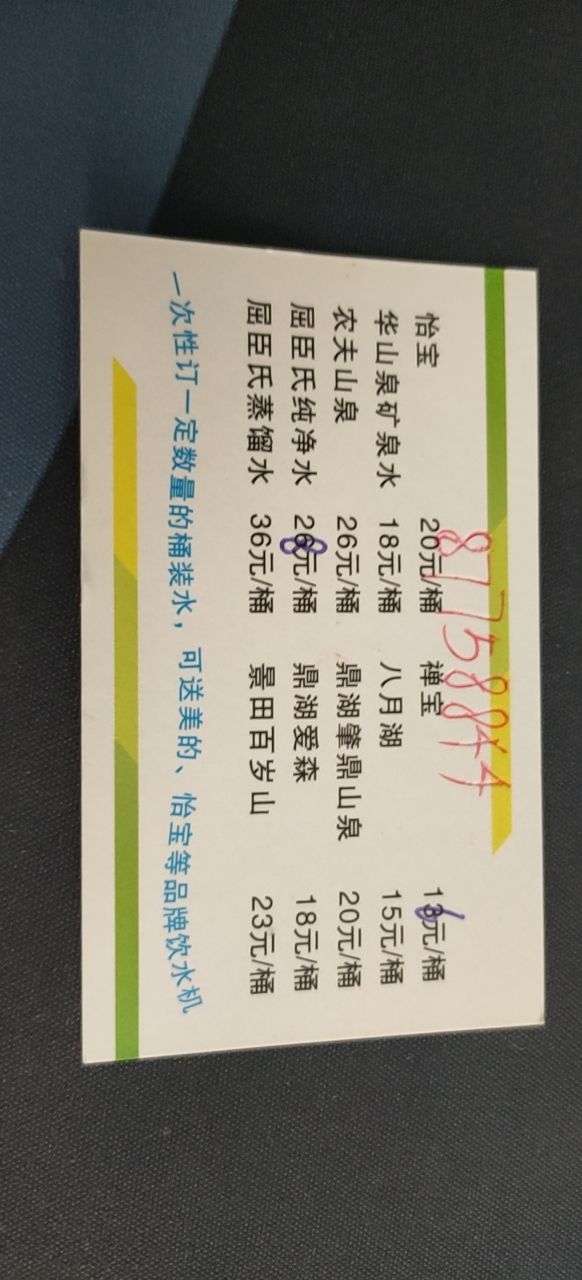 87758844
怡宝 20元/桶 禅宝 16元/桶
华山泉矿泉水 18元/桶 八月湖 15元/桶
农夫山泉 26元/桶 鼎湖肇鼎山泉 20元/桶
屈臣氏纯净水 28元/桶 鼎湖爱森 18元/桶
屈臣氏蒸馏水 36元/桶 景田百岁山 23元/桶
一次性订一定数量的桶装水，可送美的、怡宝等品牌饮水机